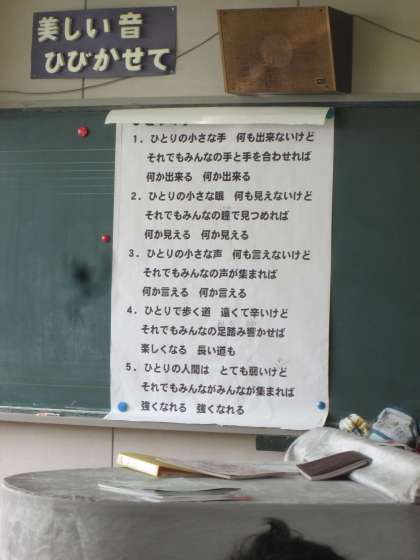 美しい音
ひびかせて
1．ひとりの小さな手　何も出来ないけど
それでもみんなの手と手を合わせれば
何か出来る　何か出来る
2．ひとりの小さな眼　何も見えないけど
それでもみんなの瞳で見つめれば
何か見える　何か見える
3．ひとりの小さな声　何も言えないけど
それでもみんなの声が集まれば
何か言える　何か言える
4．ひとりで歩く道　遠くて辛いけど
それでもみんなの足踏み響かせば
楽しくなる　長い道も
5．ひとりの人間は　とても弱いけど
それでもみんながみんなが集まれば
強くなれる　強くなれる